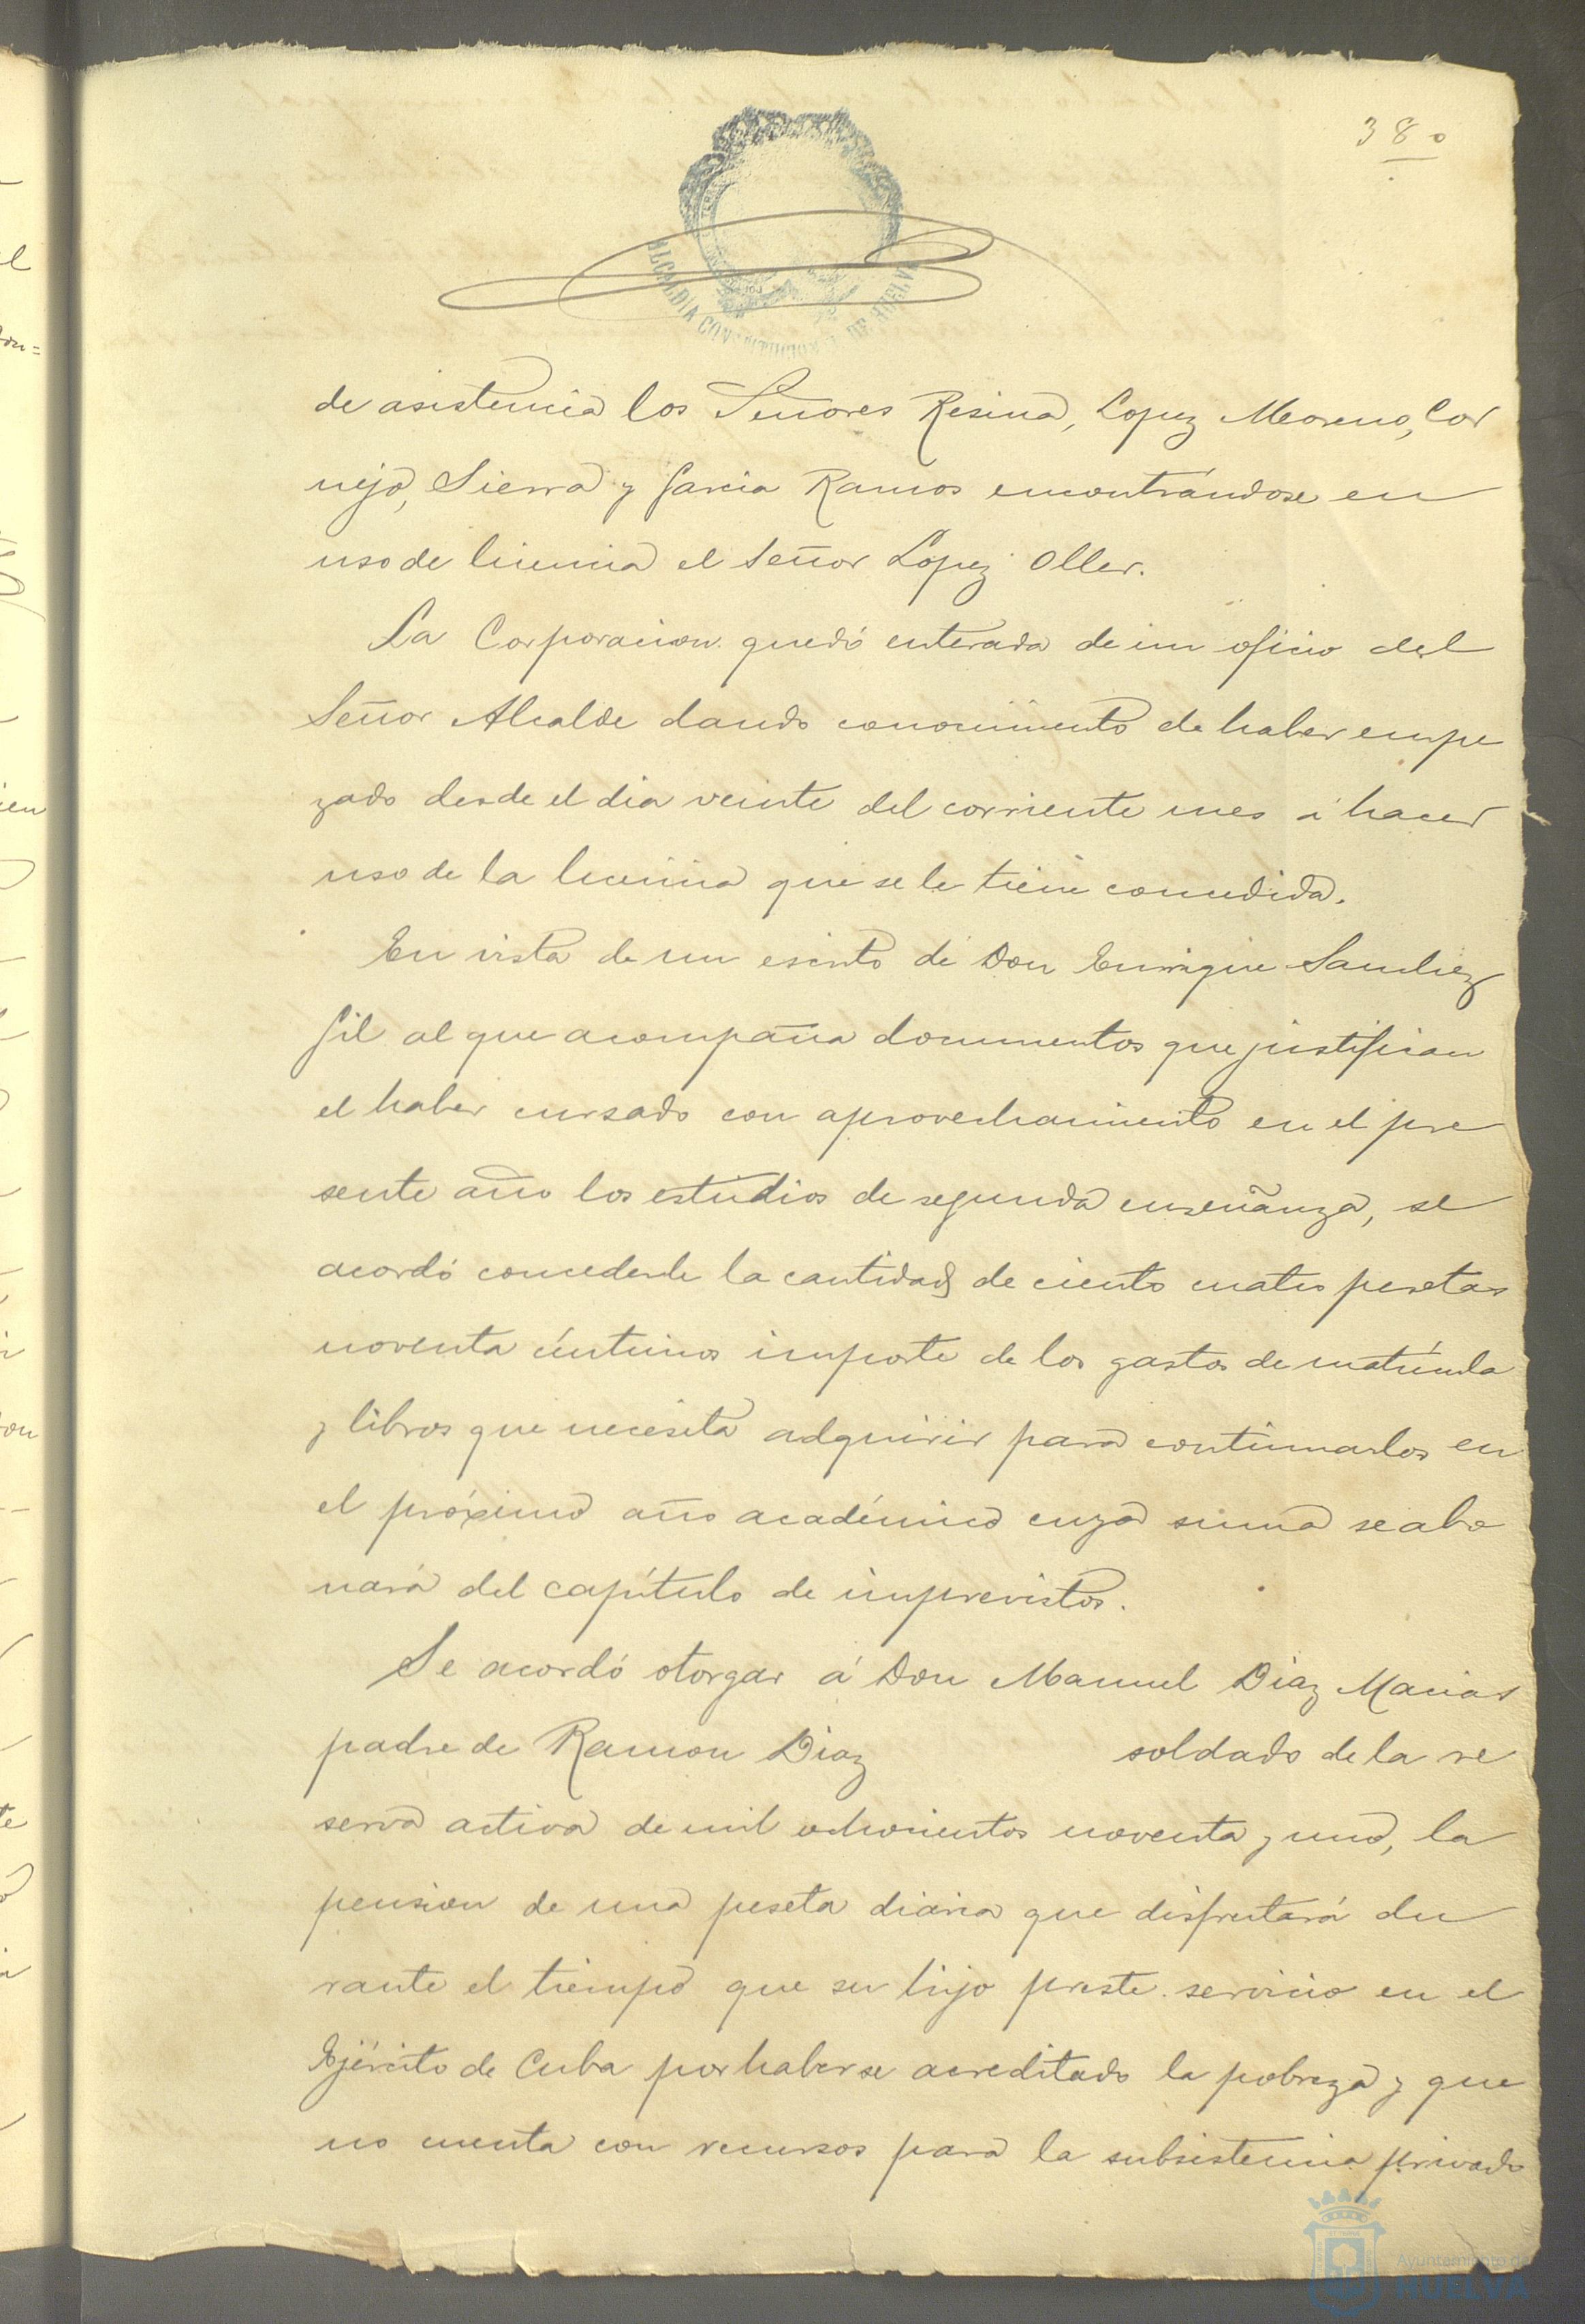 380
ALCALDÍA CONSTITUCIONAL DE HUELVA
de asistencia los Señores Resina, Lopez Moreno, Cor
nejo, Sierra y Garcia Ramos encontrándose en
uso de licencia el Señor López Oller.
La Corporacion quedó enterada de un oficio del
Señor Alcalde dando conocimiento de haber empe
zado desde el dia veinte del corriente mes á hacer
uso de la licencia que se le tiene concedida.
En vista de un escrito de Don Enrique Sanchez
Gil al que acompaña documentos que justifican
el haber cursado con aprovechamiento en el pre
sente año los estudios de segunda enseñanza, se
acordó concederle la cantidad de ciento cuatro pesetas
noventa céntimos importe de los gastos de matrícula
y libros que necesita adquirir para continuarlos en
el próximo año académico cuya suma se abo
nará del capítulo de imprevistos.
Se acordó otorgar á Don Manuel Diaz Macias
padre de Ramon Diaz soldado de la re
serva activa de mil ochocientos noventa y uno, la
pension de una peseta diaria que disfrutará du
rante el tiempo que su hijo preste servicio en el
Ejército de Cuba por haberse acreditado la pobreza y que
no cuenta con recursos para la subsistencia privado
Ayuntamiento de
HUELVA